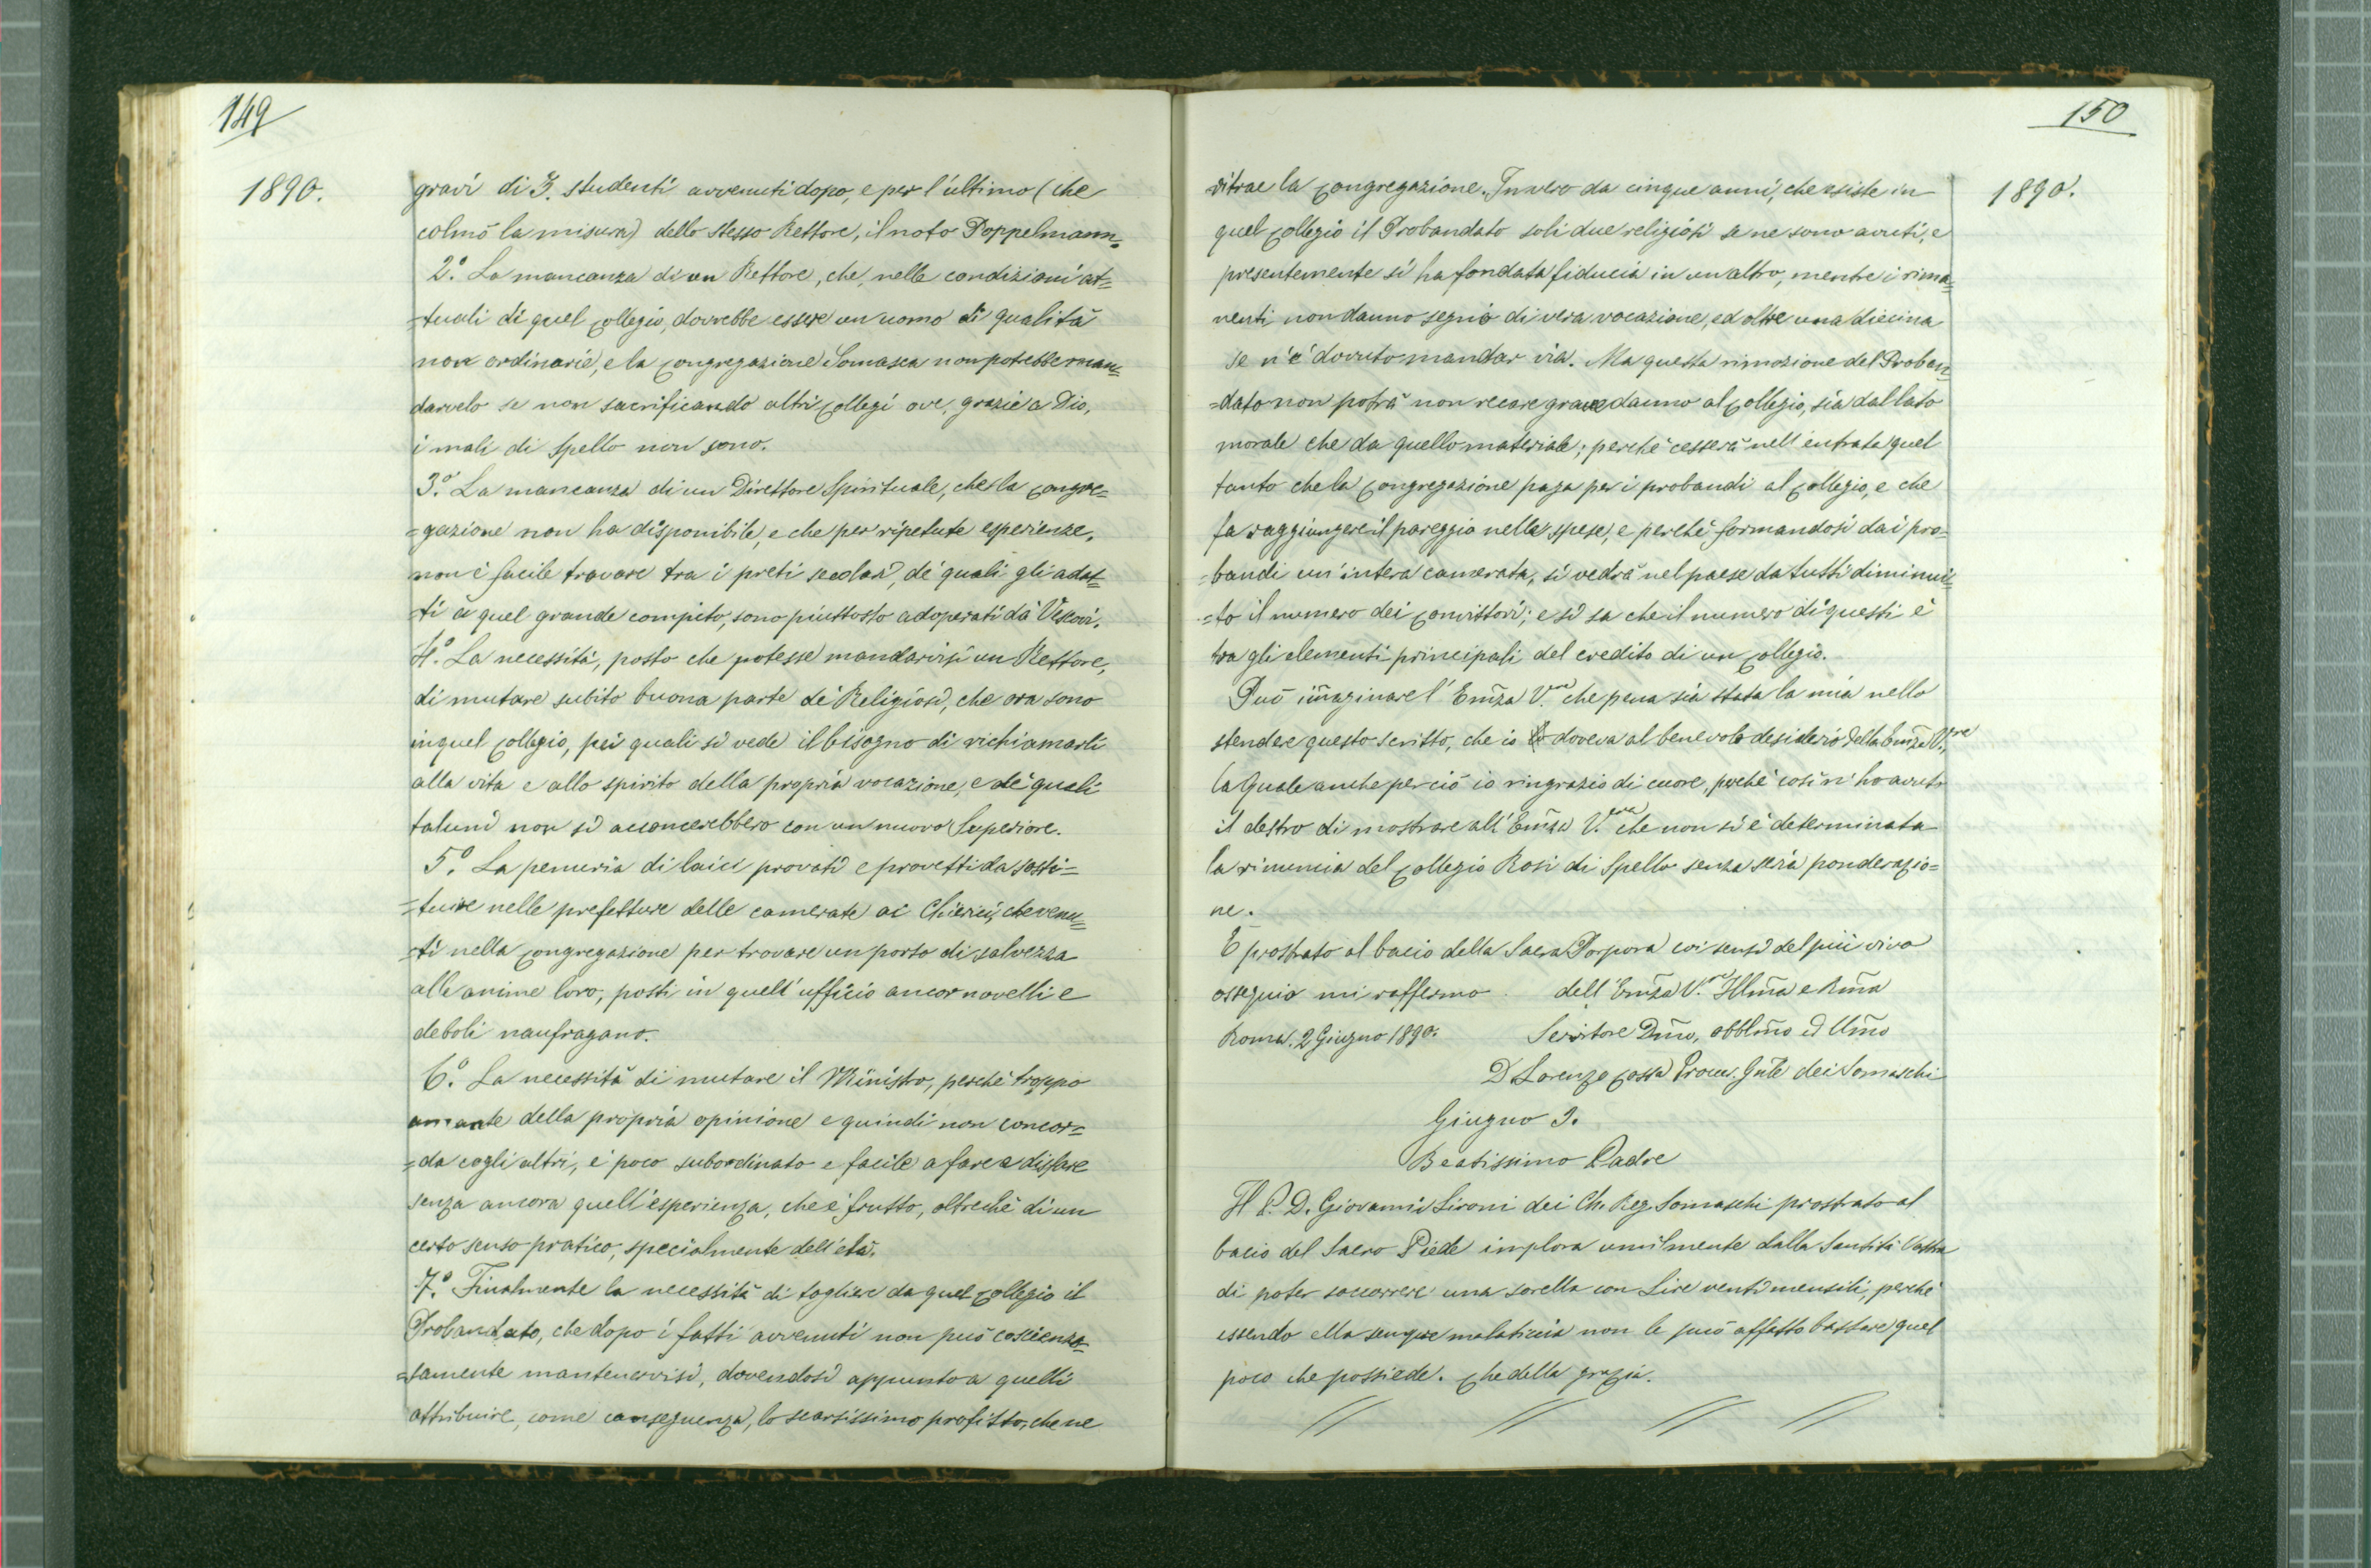 149
1890.
gravi di 3. studenti avvenuti dopo, e per l'ultimo (che
colmò la misura) dello stesso Rettore, il noto Poppelmann.
2.° La mancanza di un Rettore, che, nelle condizioni at=
=tuali di quel Collegio, dovrebbe essere un uomo di qualità
non ordinarie, e la Congregazione Somasca non potrebbe man=
darvelo se non sacrificando altri Collegi ove, grazie a Dio,
i mali di Spello non sono.
3.° La mancanza di un Direttore Spirituale, che la Congre=
=gazione non ha disponibile, e che per ripetute esperienze,
non è facile trovare tra i preti secolari, de' quali gli adat=
=ti a quel grande compito, sono piuttosto adoperati da' Vescovi.
4.° La necessità, posto che potesse mandarvisi un Rettore,
di mutare subito buona parte de' Religiosi, che ora sono
in quel Collegio, pei quali si vede il bisogno di richiamarli
alla vita e allo spirito della propria vocazione, e de' quali
taluni non si acconcerebbero con un nuovo Superiore.
5.° La penuria di laici provati e provetti da sosti=
=tuire nelle prefetture delle camerate ai Chierici, che venu=
=ti nella Congregazione per trovare un porto di salvezza
alle anime loro, posti in quell'ufficio ancor novelli e
deboli naufragano.
6.° La necessità di mutare il Ministro, perchè troppo
amante della propria opinione e quindi non concor=
=da cogli altri, è poco subordinato e facile a fare e disfare
senza ancora quell'esperienza, che è frutto, oltrechè di un
certo senso pratico, specialmente dell'età.
7.° Finalmente la necessità di togliere da quel Collegio il
Probandato, che dopo i fatti avvenuti non può coscienzio=
=samente mantenervisi, dovendosi appunto a quelli
attribuire, come conseguenza, lo scarsissimo profitto, che ne
150
1890.
ritrae la Congregazione. Invero da cinque anni, che esiste in
quel Collegio il Probandato soli due religiosi se ne sono avuti, e
presentemente si ha fondata fiducia in un altro, mentre i rima=
nenti non danno segno di vera vocazione, ed oltre una diecina
se n'è dovuto mandar via. Ma questa rimozione del Proban=
=dato non potrà non recare grave danno al Collegio, sia dal lato
morale che da quello materiale; perchè cesserà nell'entrata quel
tanto che la Congregazione paga per i probandi al Collegio, e che
fa raggiungere il pareggio nelle spese, e perchè formandosi dai pro=
=bandi un'intera camerata, si vedrà nel paese da tutti diminui=
=to il numero dei Convittori; e si sa che il numero di questi è
tra gli elementi principali del credito di un Collegio.
Può im̃aginare l'Em̃za V.ra che pena sia stata la mia nello
stendere questo scritto, che io doveva al benevolo desiderio della Em̃za V.ra,
la Quale anche perciò io ringrazio di cuore, perchè così n'ho avuto
il destro di mostrare all'Em̃za V.ra che non si è determinata
la rinuncia del Collegio Rosi di Spello senza seria ponderazio=
ne.
E prostrato al bacio della Sacra Porpora coi sensi del più vivo
ossequio mi raffermo dell'Em̃za V.ra Illm̃a e Rm̃a
Roma. 2 Giugno 1890. Servitore Dm̃o, obblm̃o ed Um̃o
D. Lorenzo Cossa Procur. Gnl̃e dei Somaschi
Giugno 3.
Beatissimo Padre
Il P. D. Giovanni Sironi dei Ch. Reg. Somaschi prostrato al
bacio del Sacro Piede implora umilmente dalla Santità Vostra
di poter soccorrere una sorella con Lire venti mensili, perchè
essendo ella sempre malaticcia non le può affatto bastare quel
poco che possiede. Che della grazia.